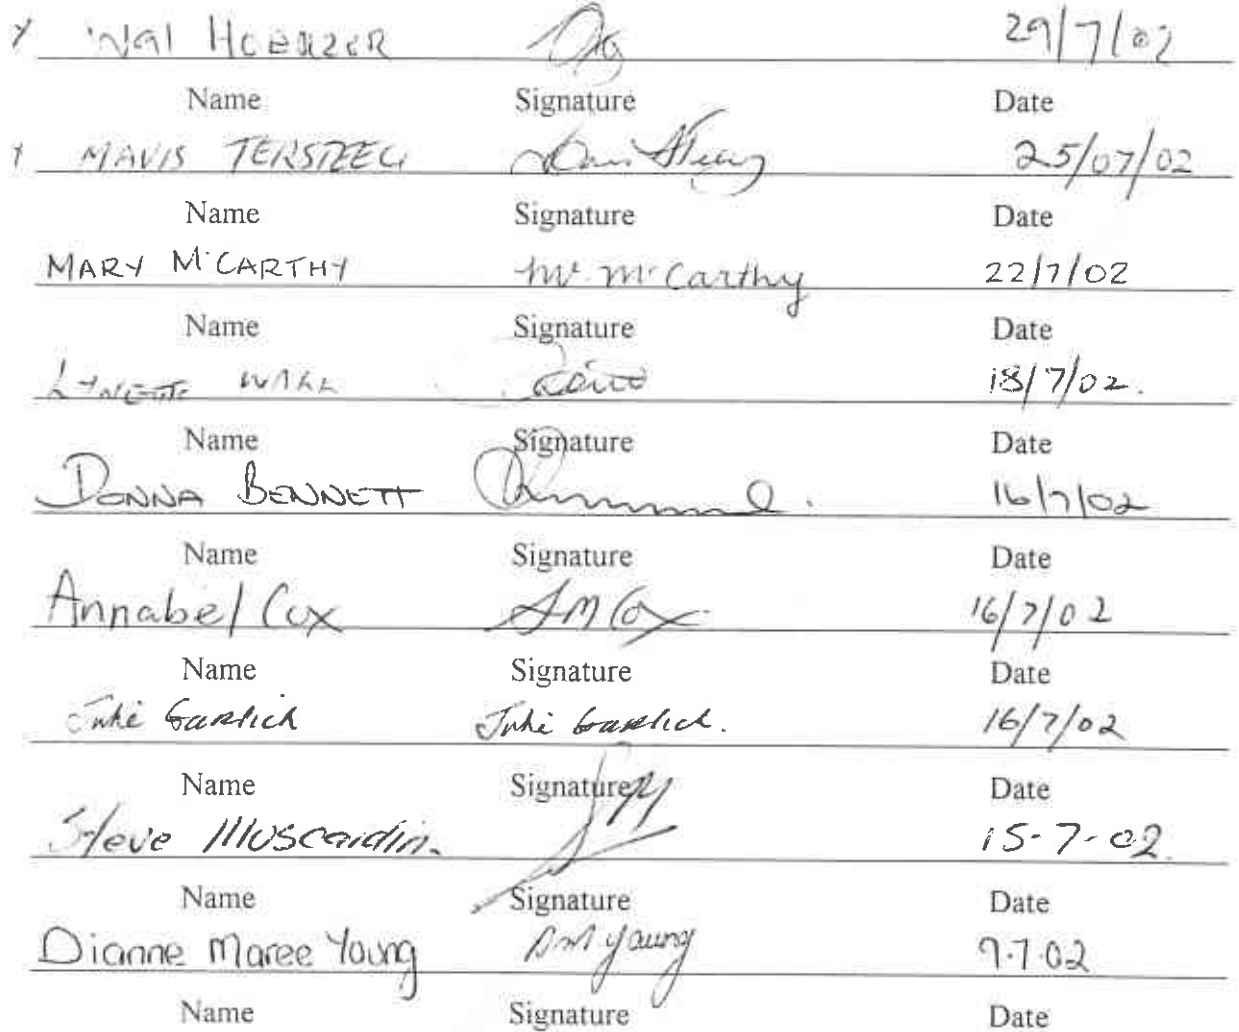 Wal HOERZER 29/7/02
Name Signature Date
MAVIS TERSTEEG 25/07/02
Name Signature Date
MARY McCARTHY M McCarthy 22/7/02
Name Signature Date
LYNETTE WALL 18/7/02.
Name Signature Date
DONNA BENNETT 16/7/02
Name Signature Date
Annabel Cox AM Cox 16/7/02
Name Signature Date
Julie Garlick Julie Garlick. 16/7/02
Name Signature Date
Steve Muscardin. 15-7-02.
Name Signature Date
Dianne Maree Young DM Young 9.7.02
Name Signature Date